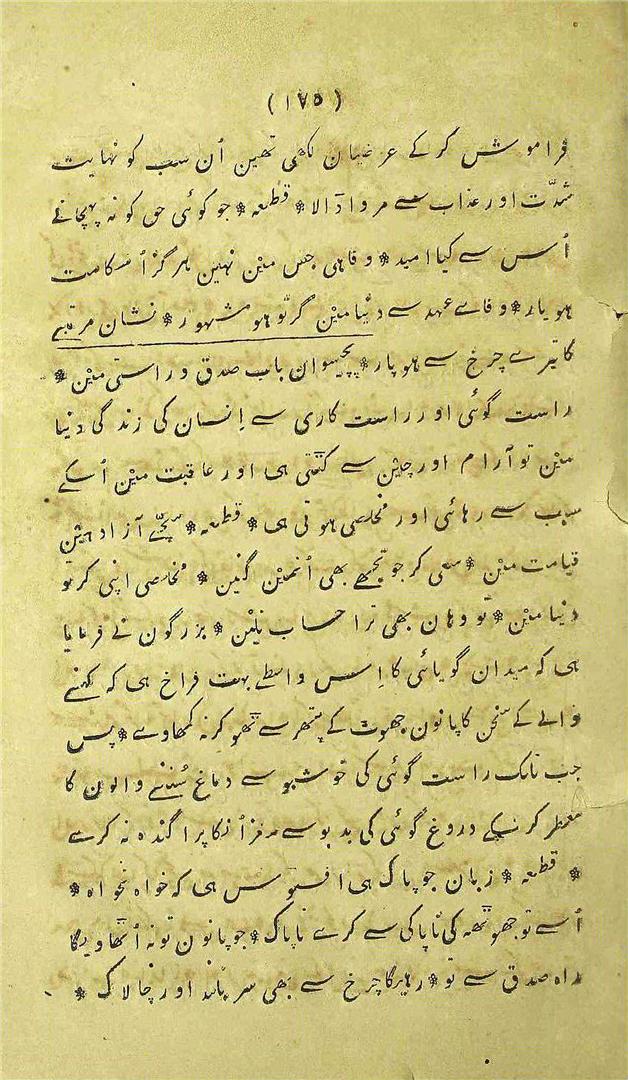 (۱۷۵)
فراموش کر کے عرضیان لکھی تھین اُن سب کو نہایت
شدّت اور عذاب سے مروا ڈالا * قطعہ * جو کوئی حق کو نہ پہچانے
اُس سے کیا امید * وفا ہی جس مین نہین ہرگز اُسکا مت
ہو یار * وفاے عہد سے دنیا مین گر تو ہو مشہور * نشان مرتبے
کا تیرے چرخ سے ہو پار * پچیسوان باب صدق و راستی مین *
راست گوئی اور راست کاری سے اِنسان کی زندگی دنیا
مین تو آرام اور چین سے کٹتی ہی اور عاقبت مین اُسکے
سبب سے رہائی اور مخلصی ہوتی ہی * قطعہ * سچّے آزاد ہین
قیامت مین * سعی کر جو تجھے بھی اُنمین گنین * مخلصی اپنی کر تو
دنیا مین * تو وہان بھی ترا حساب نلین * بزرگون نے فرمایا
ہی کہ میدان گویائی کا اِس واسطے بہت فراخ ہی کہ کہنے
والے کے سخن کا پانون جھوٹ کے پتھر سے ٹھوکر نہ کھاوے * پس
جب تلک راست گوئی کی خوشبو سے دماغ سُننے والون کا
معطر کر سکے دروغ گوئی کی بدبو سے مغز اُنکا پراگندہ نہ کرے
* قطعہ * زبان جو پاک ہی افسوس ہی کہ خواہ نخواہ *
اُسے تو جھوٹھہ کی ناپاکی سے کرے ناپاک * جو پانون تو نہ اُٹھاویگا
راہ صدق سے تو * رہیگا چرخ سے بھی سربلند اور چالاک *